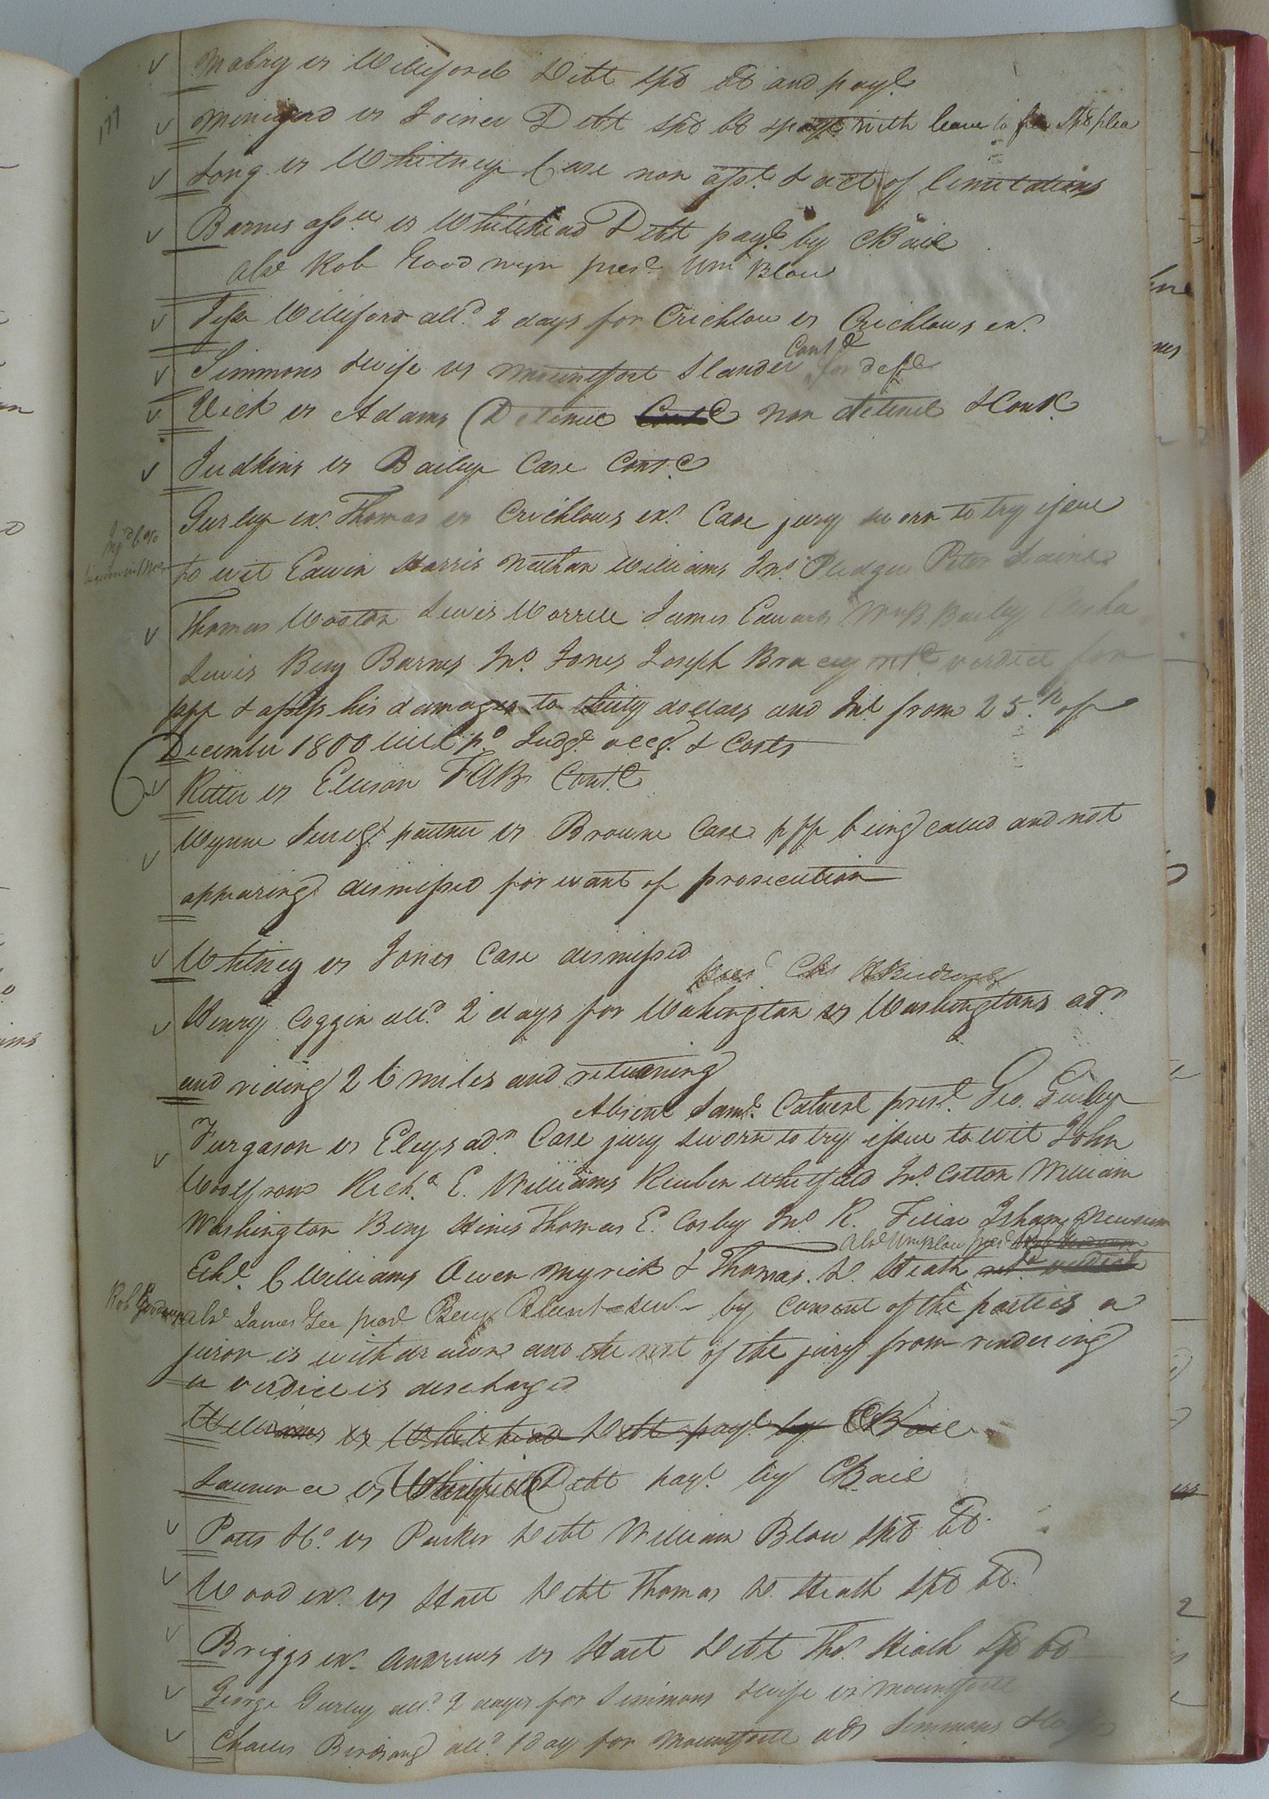 177
Mabry vs Williford Debt spb bb and payt
vs Joiner Debt spb bb & payt with leave to file spb plea
Long vs Whitney Case non asst & act of limitations
Barnes assee vs Whitehead Debt payt by CBail
Abst Rob Goodwyn prest Wm Blow
Jesse Williford alld 2 days for Crichlow vs Crichlows exr
Simmons & wife vs Mountfort Slander Contd for deft
Vick vs Adams Detinue Contd non detinet & Contd
Judkins vs Bailey Case Contd
Gurley exr Thomas vs Crichlows exr Case jury sworn to try issue
to wit Edwin Harris Nathan Williams Jno Pledger Peter
Thomas Wooton Lewis Worrell James Edwards Bailey
Lewis Benj Barnes Jno Jones Joseph Bracey retd verdict for
plff & assess his damages to thirty dollars and Int from 25th of
December 1800 till pd Judgt accg & Costs
Ritter vs Ellison TAB Contd
Wynne partner vs Browne Case plff being called and not
appearing dismissed for want of prosecution
Whitney vs Jones Case dismissed
Henry Coggin alld 2 days for Wahington vs Washingtons adr
and riding 26 miles and returning
Absent Saml Calvert prest Geo. Gurley
Furgason vs Eleys adr Case jury sworn to try issue to wit John
Woolfrow Richd E. Williams Reuben Whitfield Jno Cotton William
Washington Benj Hines Thomas E. Cosby Jno R. Isham Newsum
Abst Wm Blow prest
C Williams Owen Myrick & Thomas. W. Heath retd verdict
Rob Goodwyn abst James Gee prest Benj Blunt by consent of the parties a
juror is withdrawn and the rest of the jury from rendering
a verdict is discharged
Williams vs Whitehead Debt payt by CBail
Laurence vs Whitfield Debt payt by CBail
Potts & Co vs Parker Debt William Blow spb bb
Wood exr vs Hart Debt Thomas W. Heath spb bb
Briggs exr Andrews vs Hart Debt Thos Heath spb bb
George Gurley alld 2 days for Simmons & wife vs Mountfort
Charles Birdsong alld 1 day for Mountfort ads Simmons &